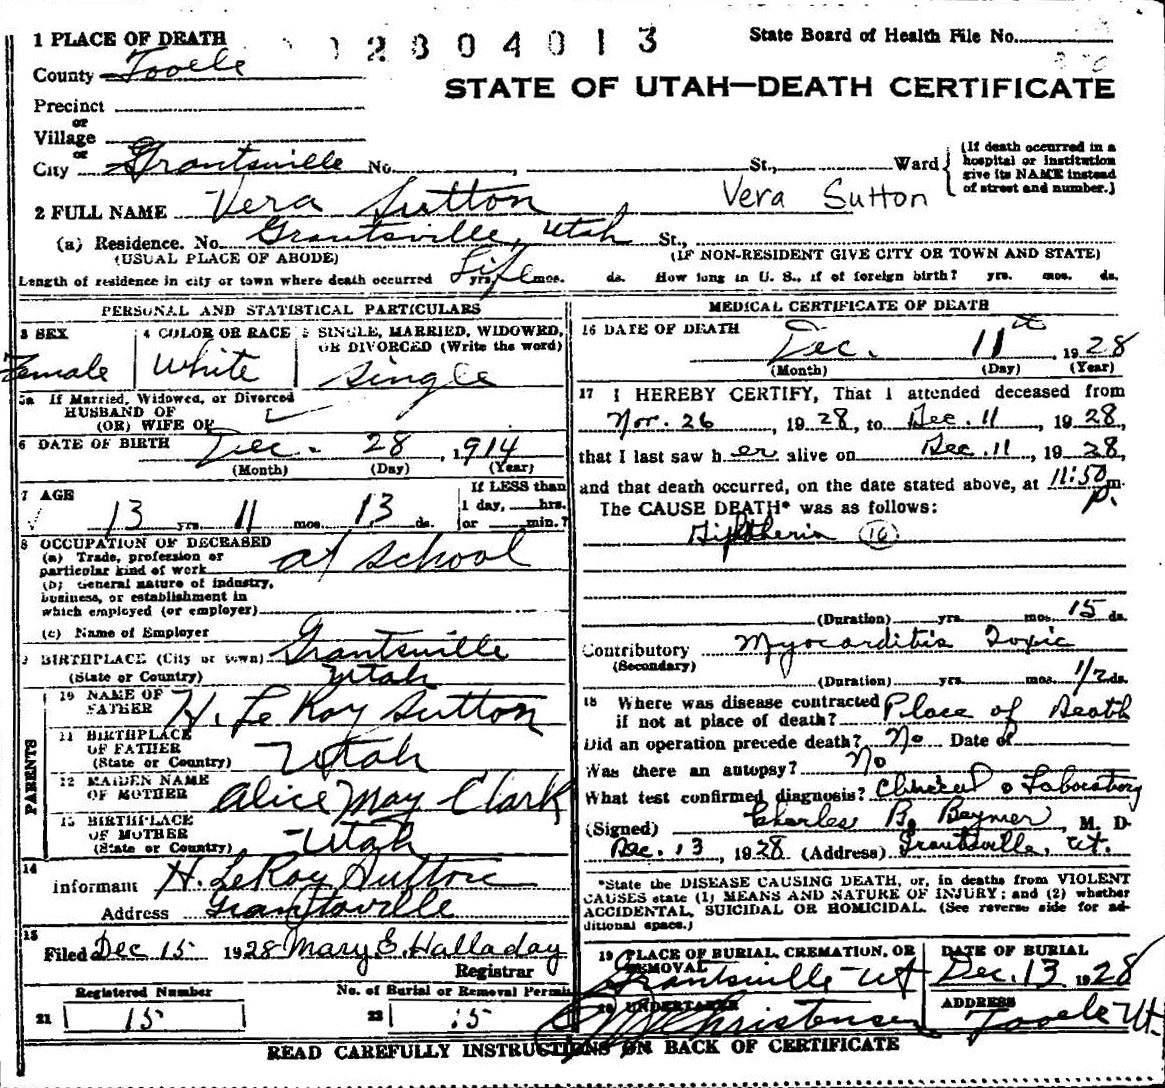 1 PLACE OF DEATH
2804013
State Board of Health File No.
County Tooele
STATE OF UTAH—DEATH CERTIFICATE
Precinct
or
Village
or
City Grantsville No. St., Ward
(If death occurred in a hospital or institution give its NAME instead of street and number.)
2 FULL NAME Vera Sutton
Vera Sutton
(a) Residence. No. Grantsville, Utah St.,
(USUAL PLACE OF ABODE) (IF NON-RESIDENT GIVE CITY OR TOWN AND STATE)
Length of residence in city or town where death occurred Life yrs. mos. ds. How long in U. S., if of foreign birth? yrs. mos. ds.
PERSONAL AND STATISTICAL PARTICULARS
3 SEX
Female
4 COLOR OR RACE
White
5 SINGLE, MARRIED, WIDOWED,
OR DIVORCED (Write the word)
Single
5a If Married, Widowed, or Divorced
HUSBAND OF
(OR) WIFE OF
6 DATE OF BIRTH Dec. 28, 1914
(Month) (Day) (Year)
7 AGE
13 yrs. 11 mos. 13 ds.
If LESS than
1 day, hrs.
or min.?
8 OCCUPATION OF DECEASED
(a) Trade, profession or
particular kind of work at school
(b) General nature of industry,
business, or establishment in
which employed (or employer)
(c) Name of Employer
9 BIRTHPLACE (City or town) Grantsville
(State or Country) Utah
PARENTS
10 NAME OF
FATHER H. LeRoy Sutton
11 BIRTHPLACE
OF FATHER
(State or Country) Utah
12 MAIDEN NAME
OF MOTHER Alice May Clark
13 BIRTHPLACE
OF MOTHER
(State or Country) Utah
14
informant H. LeRoy Sutton
Address Grantsville
15
Filed Dec 15 1928 Mary E. Halladay
Registrar
Registered Number
21 15
No. of Burial or Removal Permit
22 15
MEDICAL CERTIFICATE OF DEATH
16 DATE OF DEATH
Dec. 11th, 1928
(Month) (Day) (Year)
17 I HEREBY CERTIFY, That I attended deceased from
Nov. 26, 1928, to Dec. 11, 1928,
that I last saw her alive on Dec. 11, 1928,
and that death occurred, on the date stated above, at 11:50 p. m.
The CAUSE DEATH* was as follows:
Diphtheria (10)
(Duration) yrs. mos. 15 ds.
Contributory Myocarditis Toxic
(Secondary)
(Duration) yrs. mos. 1/2 ds.
18 Where was disease contracted
if not at place of death? Place of Death
Did an operation precede death? No Date of
Was there an autopsy? No
What test confirmed diagnosis? Clinical & Laboratory
(Signed) Charles B. Beymer, M. D.
Dec. 13, 1928 (Address) Grantsville, Ut.
*State the DISEASE CAUSING DEATH, or, in deaths from VIOLENT
CAUSES state (1) MEANS AND NATURE OF INJURY; and (2) whether
ACCIDENTAL, SUICIDAL OR HOMICIDAL. (See reverse side for ad-
ditional space.)
19 PLACE OF BURIAL, CREMATION, OR
REMOVAL
Grantsville Ut
DATE OF BURIAL
Dec. 13 1928
20 UNDERTAKER
Christensen
ADDRESS
Tooele Ut.
READ CAREFULLY INSTRUCTIONS ON BACK OF CERTIFICATE